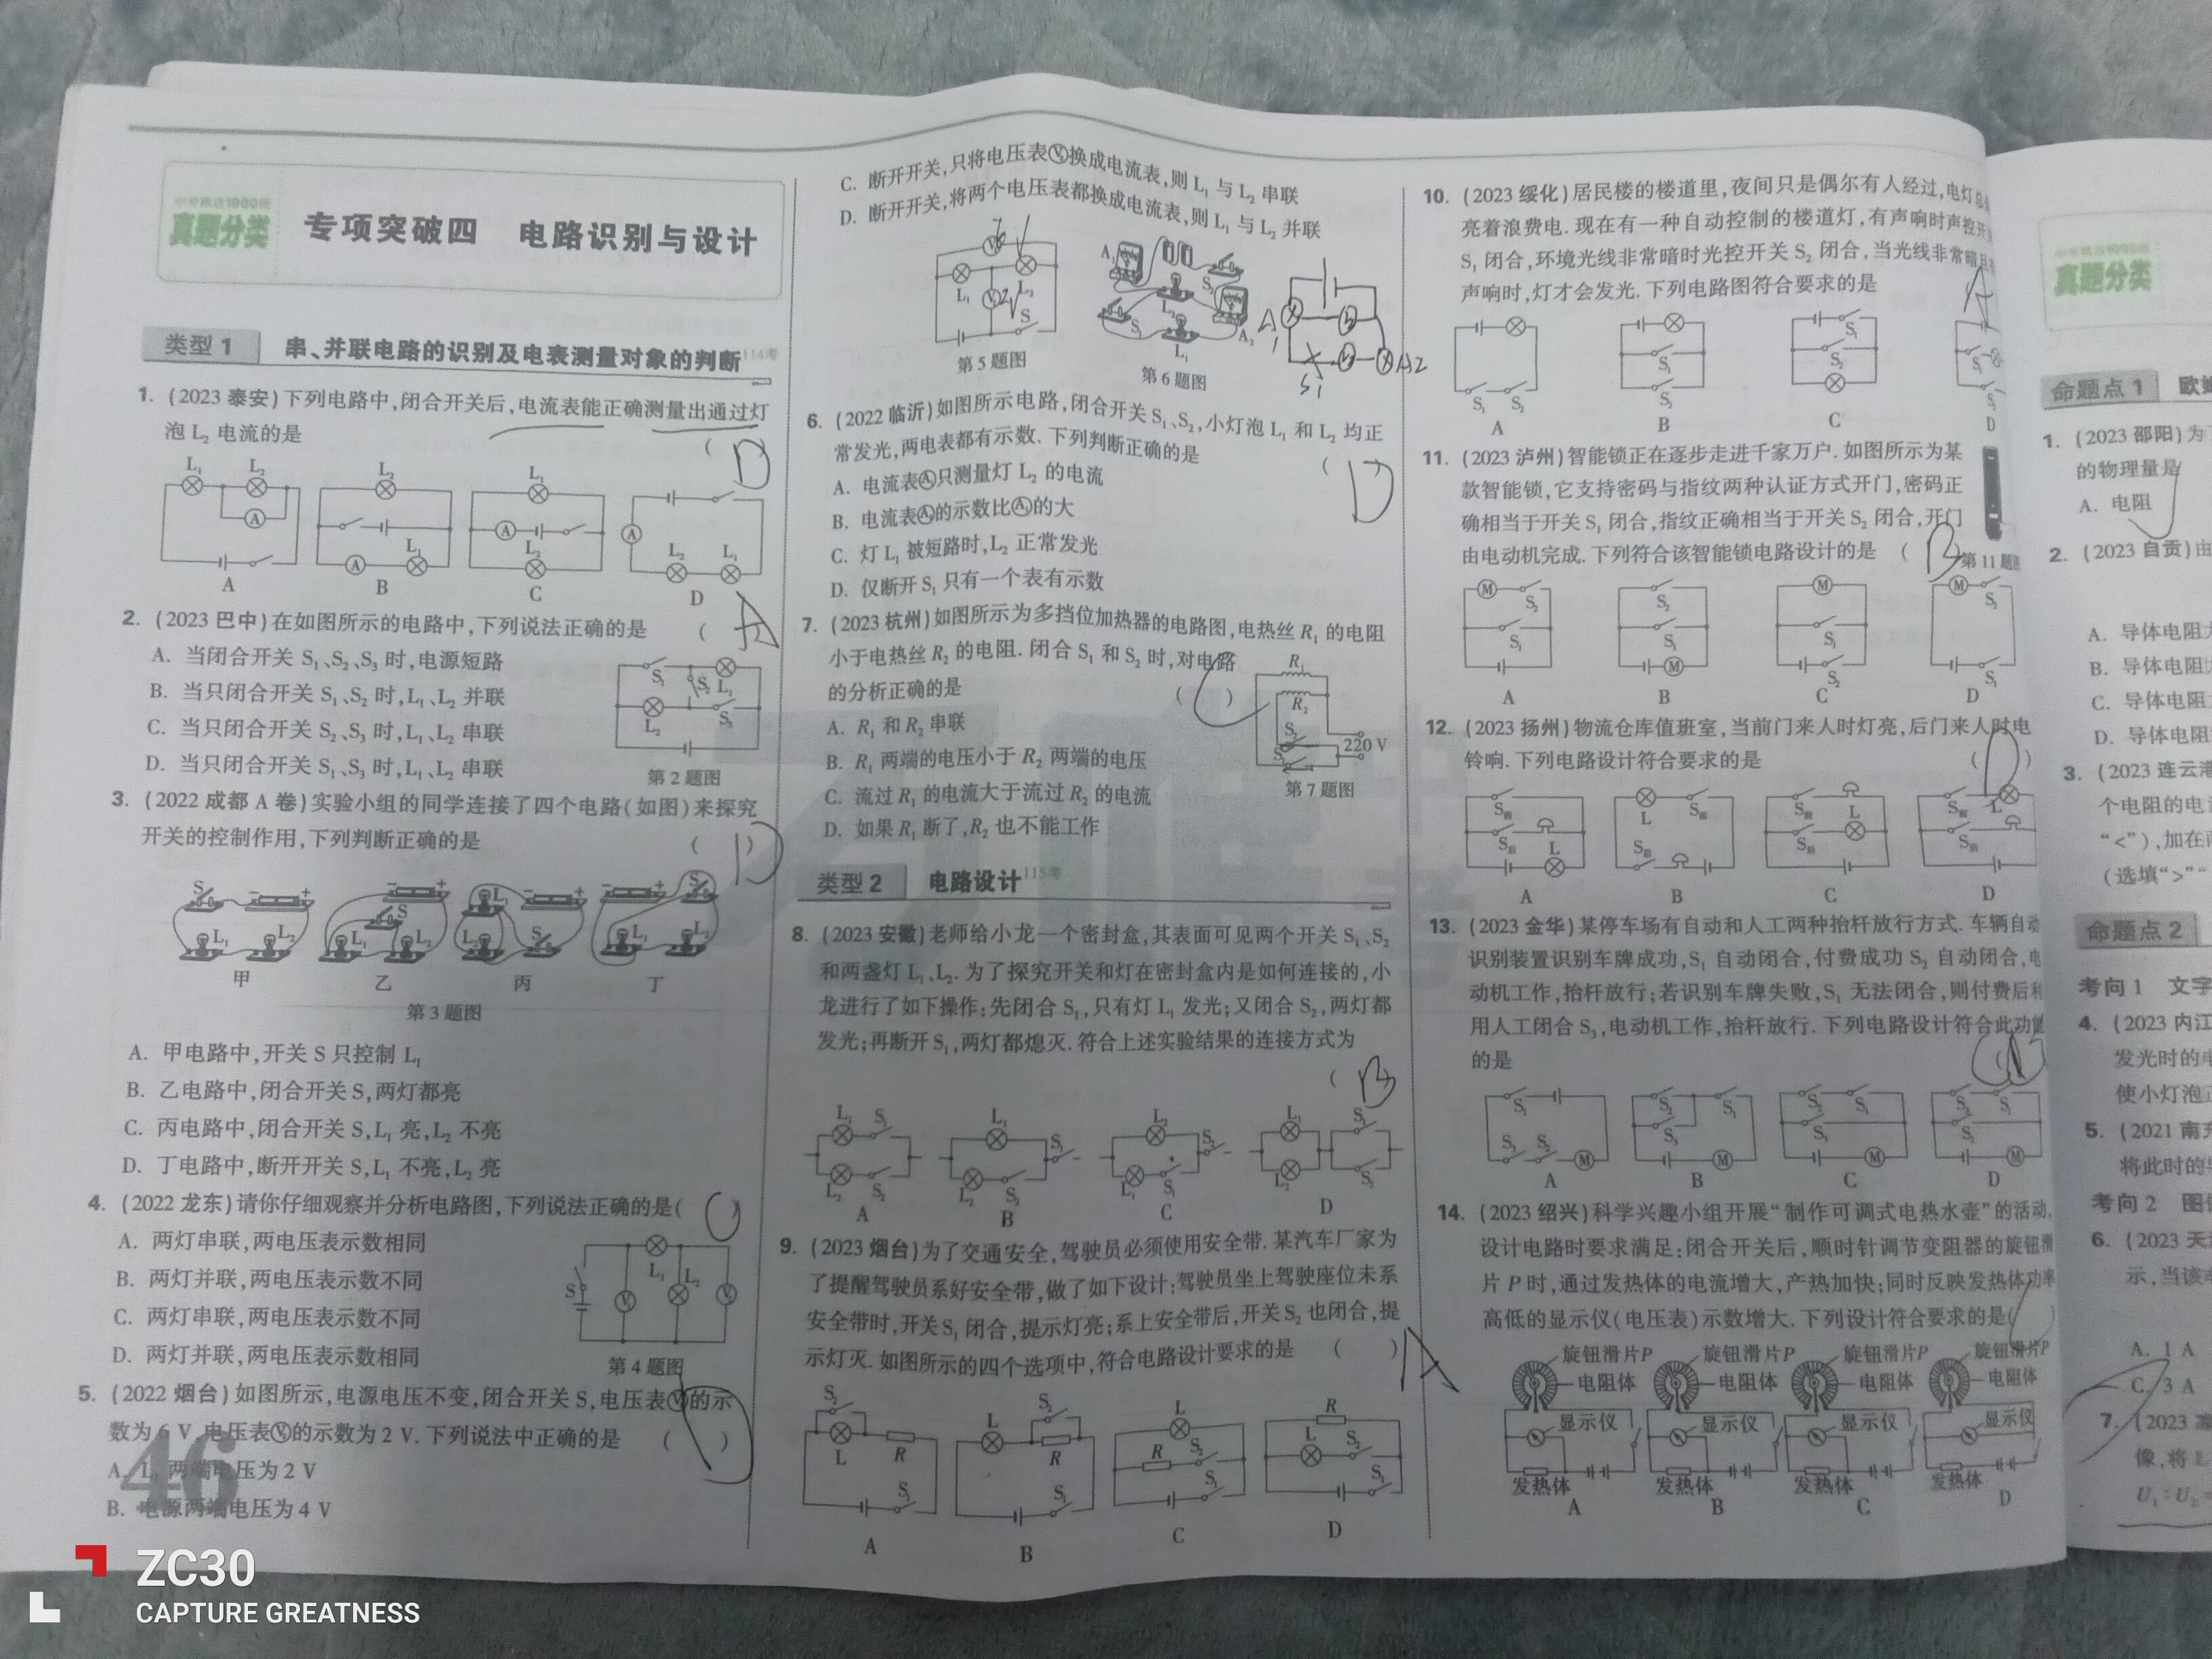 真题分类
专项突破四 电路识别与设计
类型1 串、并联电路的识别及电表测量对象的判断
1. (2023泰安)下列电路中,闭合开关后,电流表能正确测量出通过灯
泡 L₂ 电流的是 ( D )
L₁ L₂ A
L₂ A L₁
L₁ A L₂
A L₂ L₁
A B C D
2. (2023巴中)在如图所示的电路中,下列说法正确的是 ( A
A. 当闭合开关 S₁、S₂、S₃ 时,电源短路
B. 当只闭合开关 S₁、S₂ 时,L₁、L₂ 并联
C. 当只闭合开关 S₂、S₃ 时,L₁、L₂ 串联
D. 当只闭合开关 S₁、S₃ 时,L₁、L₂ 串联
S₁ S₂ L₁ L₂ S₃
第2题图
3. (2022成都A卷)实验小组的同学连接了四个电路(如图)来探究
开关的控制作用,下列判断正确的是 ( D )
甲 乙 丙 丁
第3题图
A. 甲电路中,开关 S 只控制 L₁
B. 乙电路中,闭合开关 S,两灯都亮
C. 丙电路中,闭合开关 S,L₁ 亮,L₂ 不亮
D. 丁电路中,断开开关 S,L₁ 不亮,L₂ 亮
4. (2022龙东)请你仔细观察并分析电路图,下列说法正确的是( )
A. 两灯串联,两电压表示数相同
B. 两灯并联,两电压表示数不同
C. 两灯串联,两电压表示数不同
D. 两灯并联,两电压表示数相同
S L₁ L₂
第4题图
5. (2022烟台)如图所示,电源电压不变,闭合开关 S,电压表的示
数为 6 V,电压表的示数为 2 V.下列说法中正确的是 ( )
A. L 两端电压为 2 V
B. 电源两端电压为 4 V
46
C. 断开开关,只将电压表换成电流表,则 L₁ 与 L₂ 串联
D. 断开开关,将两个电压表都换成电流表,则 L₁ 与 L₂ 并联
L₁ L₂ S
第5题图
A₁ S₂ L₂ S₁ A₂ L₁
第6题图
A1 S1 A2
6. (2022临沂)如图所示电路,闭合开关 S₁、S₂,小灯泡 L₁ 和 L₂ 均正
常发光,两电表都有示数.下列判断正确的是 ( D
A. 电流表只测量灯 L₂ 的电流
B. 电流表的示数比的大
C. 灯 L₁ 被短路时,L₂ 正常发光
D. 仅断开 S₁ 只有一个表有示数
7. (2023杭州)如图所示为多挡位加热器的电路图,电热丝 R₁ 的电阻
小于电热丝 R₂ 的电阻.闭合 S₁ 和 S₂ 时,对电路
的分析正确的是 ( )
A. R₁ 和 R₂ 串联
B. R₁ 两端的电压小于 R₂ 两端的电压
C. 流过 R₁ 的电流大于流过 R₂ 的电流
D. 如果 R₁ 断了,R₂ 也不能工作
R₁ R₂ 220 V
第7题图
类型2 电路设计
8. (2023安徽)老师给小龙一个密封盒,其表面可见两个开关 S₁、S₂
和两盏灯 L₁、L₂.为了探究开关和灯在密封盒内是如何连接的,小
龙进行了如下操作:先闭合 S₁,只有灯 L₁ 发光;又闭合 S₂,两灯都
发光;再断开 S₁,两灯都熄灭.符合上述实验结果的连接方式为
( B
L₁ S₁ L₂ S₂
L₁ S₁ L₂ S₂
L₂ S₂ L₁ S₁
L₁ S₁ L₂ S₂
A B C D
9. (2023烟台)为了交通安全,驾驶员必须使用安全带.某汽车厂家为
了提醒驾驶员系好安全带,做了如下设计:驾驶员坐上驾驶座位未系
安全带时,开关 S₁ 闭合,提示灯亮;系上安全带后,开关 S₂ 也闭合,提
示灯灭.如图所示的四个选项中,符合电路设计要求的是 ( ) A
S₂ L R S₁
L S₂ R S₁
L R S₂ S₁
R L S₂ S₁
A B C D
10. (2023绥化)居民楼的楼道里,夜间只是偶尔有人经过,电灯总
亮着浪费电.现在有一种自动控制的楼道灯,有声响时声控开
S₁ 闭合,环境光线非常暗时光控开关 S₂ 闭合,当光线非常暗
声响时,灯才会发光.下列电路图符合要求的是 A
S₁ S₂
S₁ S₂
S₁ S₂
A B C D
11. (2023泸州)智能锁正在逐步走进千家万户.如图所示为某
款智能锁,它支持密码与指纹两种认证方式开门,密码正
确相当于开关 S₁ 闭合,指纹正确相当于开关 S₂ 闭合,开门
由电动机完成.下列符合该智能锁电路设计的是 ( B
第11题
M S₂ S₁
S₂ S₁ M
M S₁ S₂
M S₂ S₁
A B C D
12. (2023扬州)物流仓库值班室,当前门来人时灯亮,后门来人时电
铃响.下列电路设计符合要求的是 ( D )
S前 S后 L
L S前 S后
S前 L S后
S前 L S后
A B C D
13. (2023金华)某停车场有自动和人工两种抬杆放行方式.车辆自动
识别装置识别车牌成功,S₁ 自动闭合,付费成功 S₂ 自动闭合,电
动机工作,抬杆放行;若识别车牌失败,S₁ 无法闭合,则付费后
用人工闭合 S₃,电动机工作,抬杆放行.下列电路设计符合此功能
的是
S₁ S₃ S₂ M
S₂ S₁ S₃ M
S₂ S₁ S₃ M
M
A B C D
14. (2023绍兴)科学兴趣小组开展“制作可调式电热水壶”的活动,
设计电路时要求满足:闭合开关后,顺时针调节变阻器的旋钮滑
片 P 时,通过发热体的电流增大,产热加快;同时反映发热体功率
高低的显示仪(电压表)示数增大.下列设计符合要求的是( )
旋钮滑片P 旋钮滑片P 旋钮滑片P 旋钮滑片P
电阻体 电阻体 电阻体 电阻体
显示仪 显示仪 显示仪 显示仪
发热体 发热体 发热体 发热体
A B C D
真题分类
命题点1
1. (2023邵阳)为
的物理量是
A. 电阻
2. (2023自贡)由
A. 导体电阻
B. 导体电阻
C. 导体电阻
D. 导体电
3. (2023连云港
个电阻的电
“<”),加在
(选填“>”
命题点2
考向1 文字
4. (2023内江
发光时的电
使小灯泡
5. (2021南充
将此时的
考向2
6. (2023天
示,当该
A. 1 A
C. 3 A
7. (2023
像,将
U₁:U₂=
ZC30
CAPTURE GREATNESS